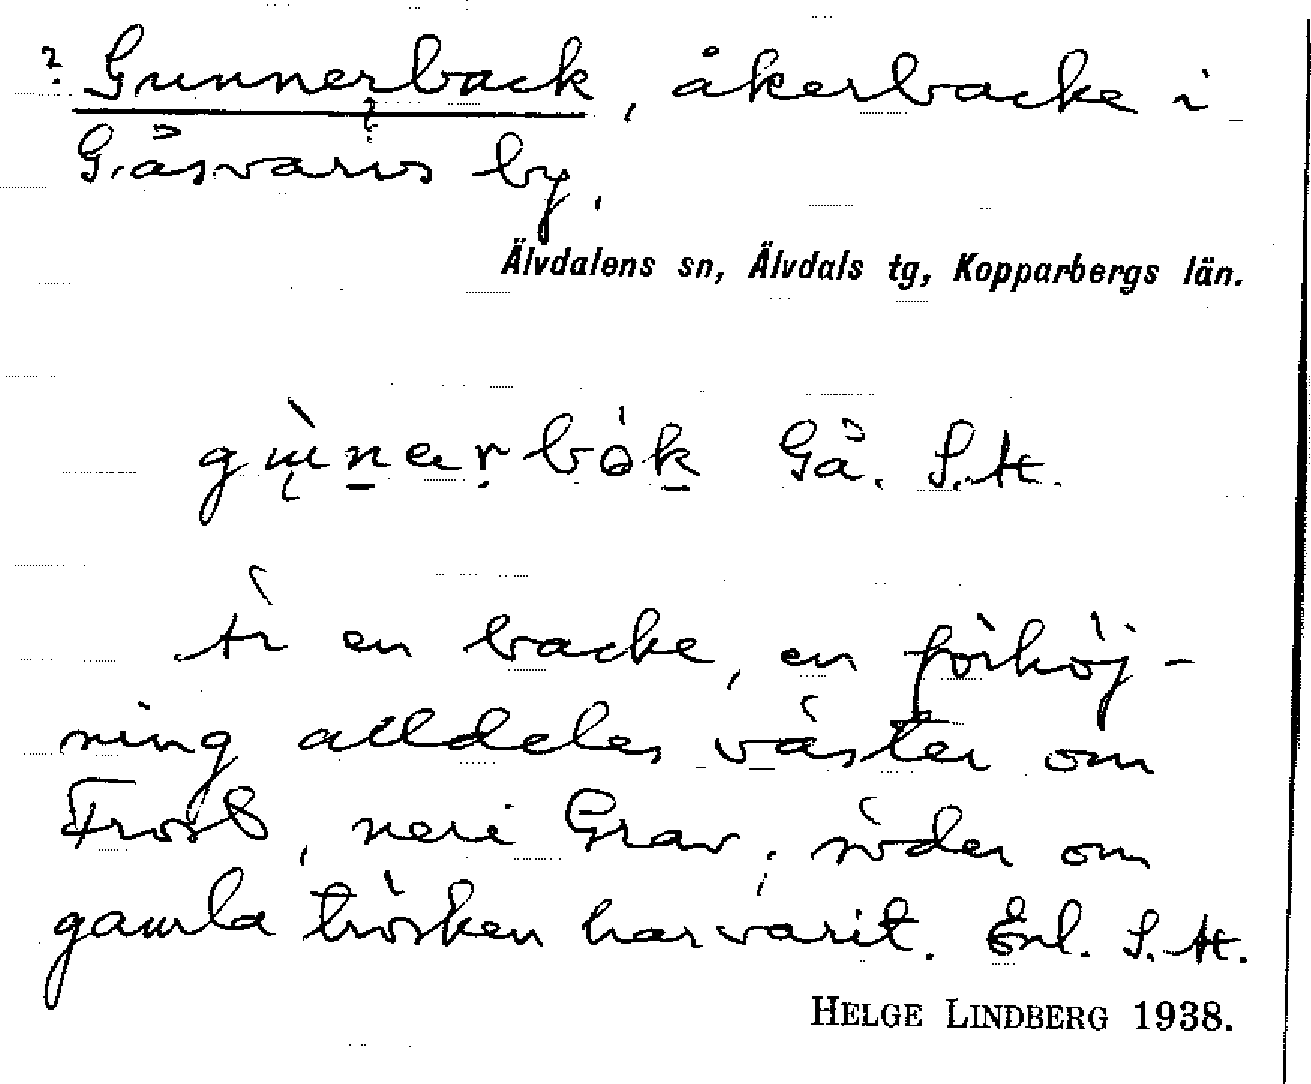 ? Gunnerback, åkerbacke i
Gåsvarvs by.
Älvdalens sn, Älvdals tg, Kopparbergs län.
Gå. S.H.
Är en backe, en förhöj-
ning alldeles väster om
Frost, neri Grav; söder om
gamla trösken har varit. Enl. S.H.
HELGE LINDBERG 1938.